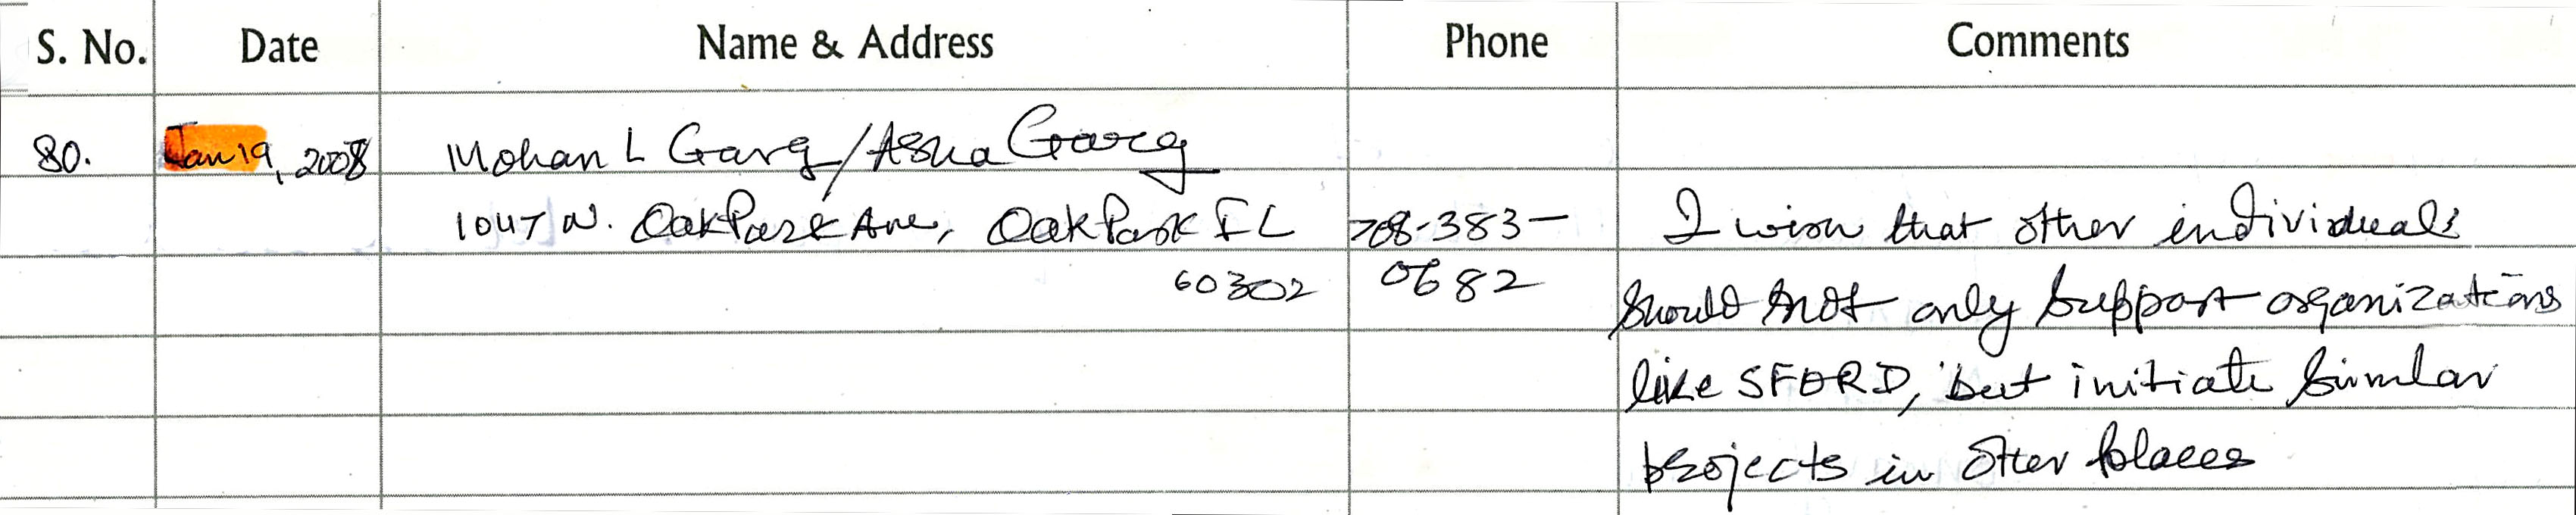 S. No. Date Name & Address Phone Comments
80. Jan 19, 2008 Mohan L Garg/Asha Garg
1047 N. Oak Park Ave, Oak Park IL 708-383- I wish that other individuals
60302 0682 should not only support organizations
like SFORD, but initiate similar
projects in other places